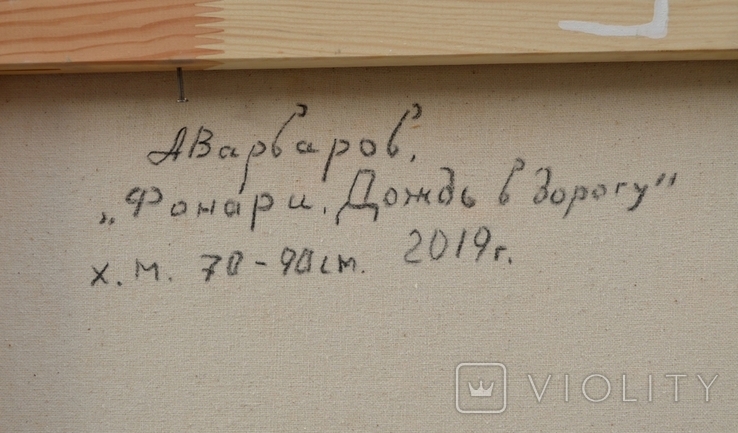 АВарваров.
„Фонари. Дождь в дорогу"
х.м. 70-90см. 2019г.
VIOLITY